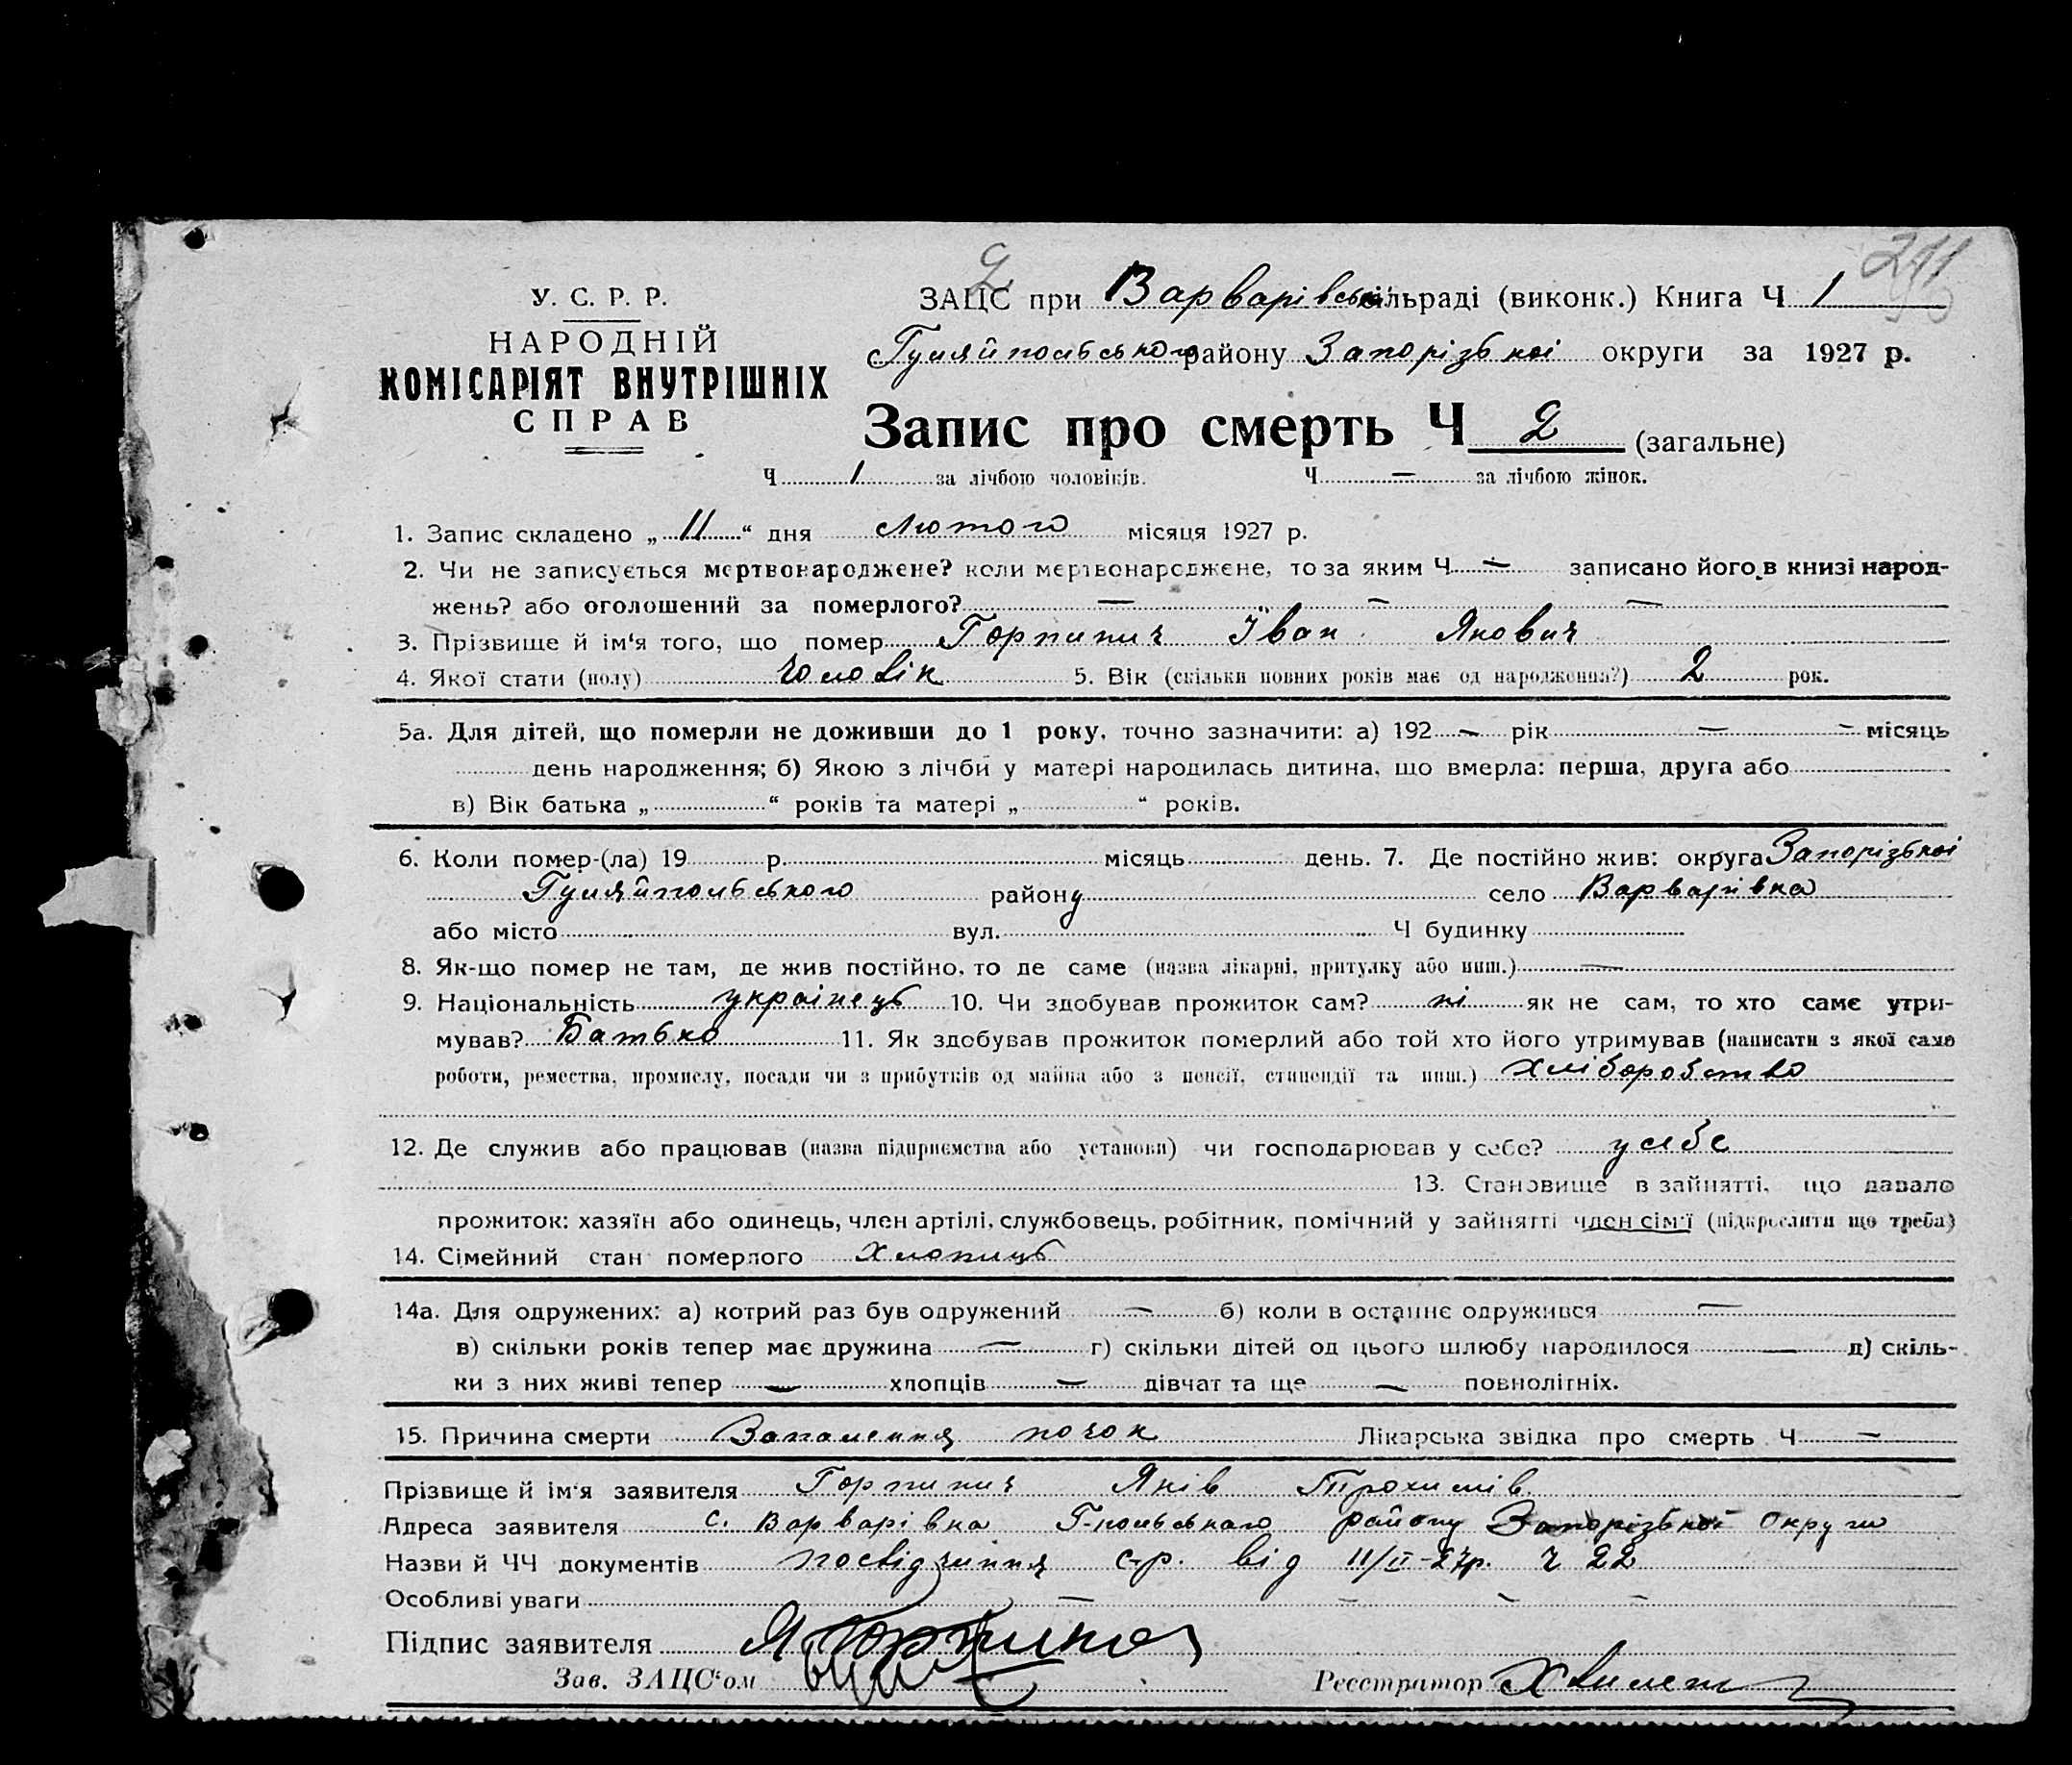 2
241
У. С. Р. Р.
НАРОДНІЙ
КОМІСАРІЯТ ВНУТРІШНІХ
СПРАВ
ЗАЦС при Варварівській сільраді (виконк.) Книга Ч 1
Гуляйпольського району Запорізької округи за 1927 р.
Запис про смерть Ч 2 (загальне)
Ч 1 за лічбою чоловіків. Ч — за лічбою жінок.
1. Запис складено „ 11 “ дня Лютого місяця 1927 р.
2. Чи не записується мертвонароджене? коли мертвонароджене, то за яким Ч — записано його в книзі народ-
жень? або оголошений за померлого? — — —
3. Прізвище й ім'я того, що помер Горпинич Іван Якович
4. Якої стати (полу) чоловік 5. Вік (скільки повних років має од народження?) 2 рок.
5а. Для дітей, що померли не доживши до 1 року, точно зазначити: а) 192 — рік — — місяць
день народження; б) Якою з лічби у матері народилась дитина, що вмерла: перша, друга або
в) Вік батька „ “ років та матері „ “ років.
6. Коли помер-(ла) 19 р. місяць день. 7. Де постійно жив: округа Запорізької
Гуляйпольського району село Варварівка
або місто вул. Ч будинку
8. Як-що помер не там, де жив постійно, то де саме (назва лікарні, притулку або инш.) —
9. Національність українець 10. Чи здобував прожиток сам? ні як не сам, то хто саме утри-
мував? Батько 11. Як здобував прожиток померлий або той хто його утримував (написати з якої само
роботи, ремества, промислу, посади чи з прибутків од майна або з пенсії, стипендії та инш.) Хліборобство
12. Де служив або працював (назва підприємства або установи) чи господарював у себе? у себе
13. Становище в зайнятті, що давало
прожиток: хазяїн або одинець, член артілі, службовець, робітник, помічний у зайнятті член сім'ї (підкреслити що треба)
14. Сімейний стан померлого Хлопиць
14а. Для одружених: а) котрий раз був одружений — б) коли в останнє одружився —
в) скільки років тепер має дружина — г) скільки дітей од цього шлюбу народилося — д) скіль-
ки з них живі тепер — хлопців — дівчат та ще — повнолітніх.
15. Причина смерти Запалення почок Лікарська звідка про смерть Ч —
Прізвище й ім'я заявителя Горпинич Яків Трохимів
Адреса заявителя с. Варварівка Г-польського району Запорізької округи
Назви й ЧЧ документів посвідчиння с-р. від 11/II-27р. ч 22
Особливі уваги — — — —
Підпис заявителя Я Горпинич
Зав. ЗАЦС'ом Реєстратор